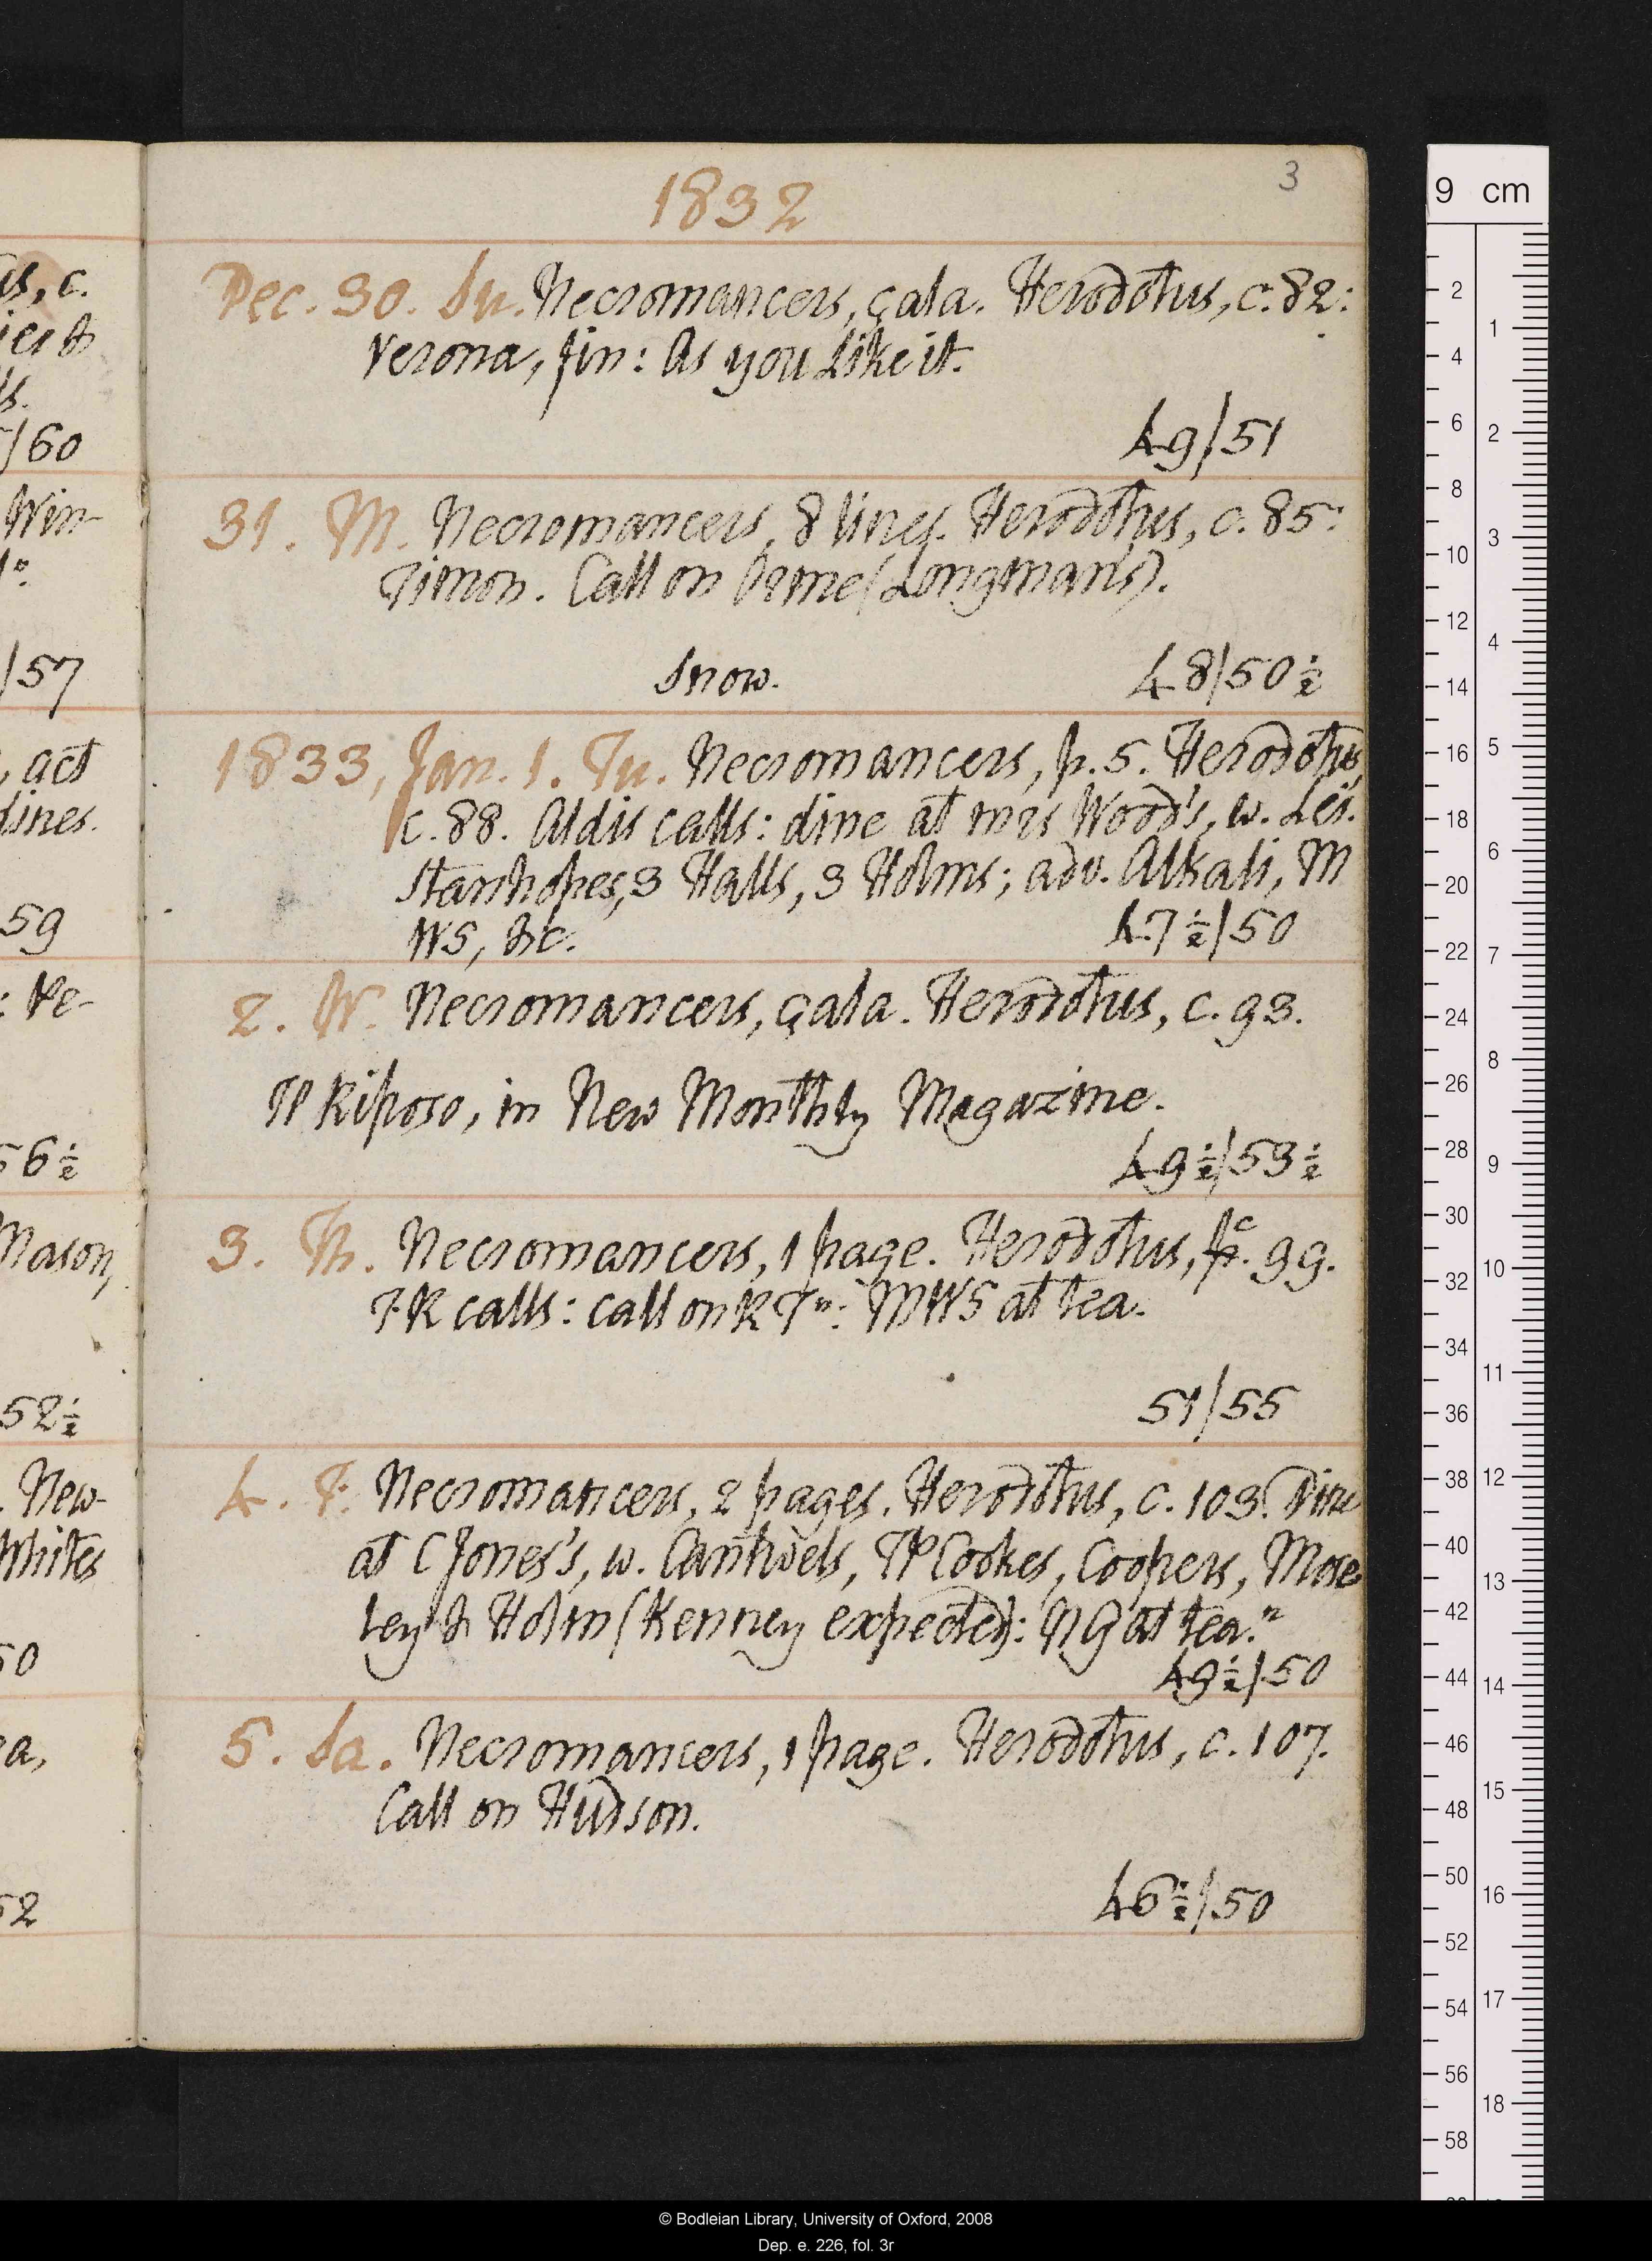 3
1832
Dec. 30. Su. Necromancers, çala. Herodotus, c. 82:
Verona, fin: As you Like it.
49/51
31. M. Necromancers, 8 lines. Herodotus, c. 85:
Timon. Call on Orme (Longman's).
Snow. 48/50½
1833, Jan. 1. Tu. Necromancers, p. 5. Herodotus,
c. 88. Aldis calls: dine at mrs Wood's, w. Lei.
Stanhopes, 3 Halls, 3 Holms; adv. Alkali, M
WS, &c. 47½/50
2. W. Necromancers, çala. Herodotus, c. 93.
Il Riposo, in New Monthly Magazine.
49½/53½
3. Th. Necromancers, 1 page. Herodotus, p c. 99.
FK calls: call on K Tn: MWS at tea.
51/55
4. F. Necromancers, 2 pages. Herodotus, c. 103. Dine
at C Jones's, w. Cantwels, TP Cookes, Coopers, Mose
ley & Holm (Kenney expected): NG at tea.n
49½/50
5. Sa. Necromancers, 1 page. Herodotus, c. 107.
Call on Hudson.
46½/50
is, c.
/60
Win-
/57
, act
lines.
59
: Ve-
56½
Mason,
52½
. New-
Whites
50
52
9 cm
2
4
6
8
10
12
14
16
18
20
22
24
26
28
30
32
34
36
38
40
42
44
46
48
50
52
54
56
58
1
2
3
4
5
6
7
8
9
10
11
12
13
14
15
16
17
18
© Bodleian Library, University of Oxford, 2008
Dep. e. 226, fol. 3r